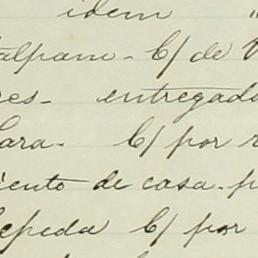 idem "
alpam - C/ de V
res - entregado
Cara - C/ por r
iento de casa - p
Cepeda C/ por